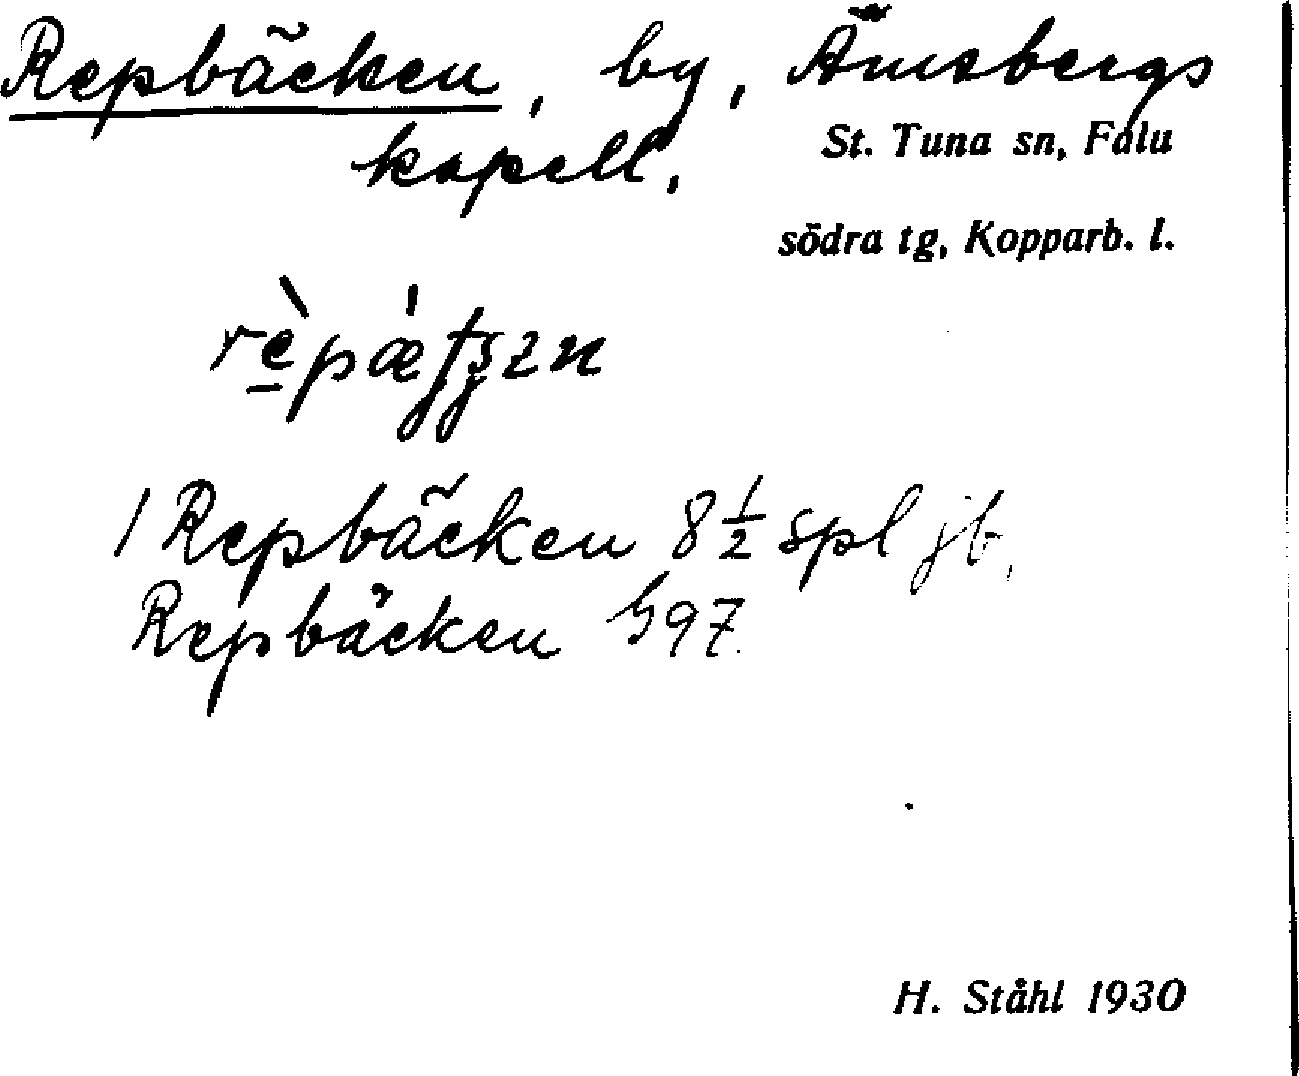 Repbäcken, by, Ämsbergs
kapell.
St. Tuna sn, Falu
södra tg, Kopparb. l.
1 Repbäcken 8 1/2 spl jb.
Repbäcken G97.
H. Ståhl 1930